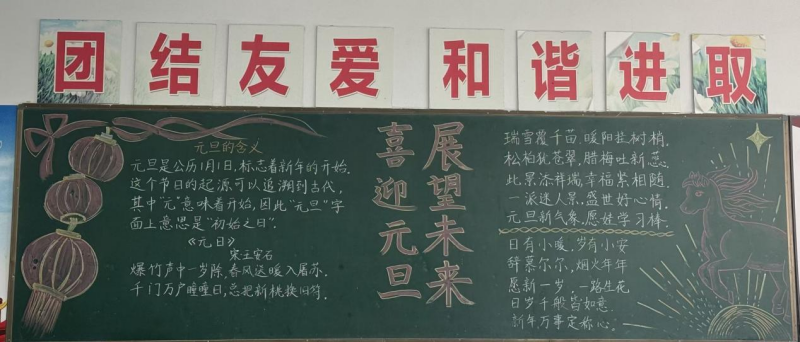 团结友爱 和谐进取
元旦的含义
元旦是公历1月1日,标志着新年的开始.
这个节日的起源可以追溯到古代,
其中"元"意味着开始,因此"元旦"字
面上意思是"初始之日".
《元日》
宋王安石
爆竹声中一岁除,春风送暖入屠苏.
千门万户曈曈日,总把新桃换旧符.
喜迎元旦
展望未来
瑞雪覆千苗,暖阳拦树梢.
松柏犹苍翠,腊梅吐新蕊.
此景添祥瑞,幸福紧相随.
一派迷人景,盛世好心情.
元旦新气象,愿娃学习棒.
日有小暖,岁有小安
辞暮尔尔,烟火年年
愿新一岁,一路生花
日岁千般皆如意
新年万事定称心.